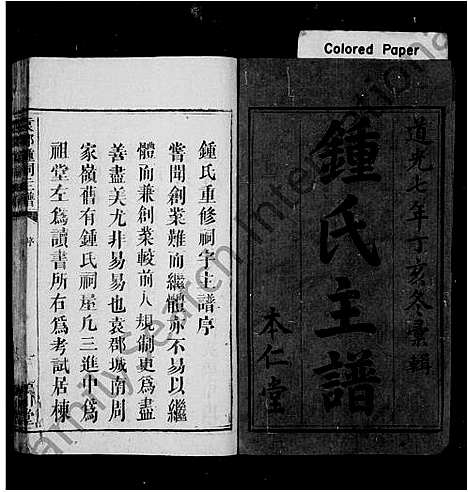 Colored Paper
道光七年丁亥冬彙輯
鍾氏主譜
本仁堂
鍾氏重修祠宇主譜序
嘗聞創業難而繼體亦不易以繼
體而兼創業較前人規制更為盡
善盡美尤非易易也袁郡城南周
家嶺舊有鍾氏祠屋凢三進中為
祖堂左為讀書所右為考試居棟
序
FamilySearch International